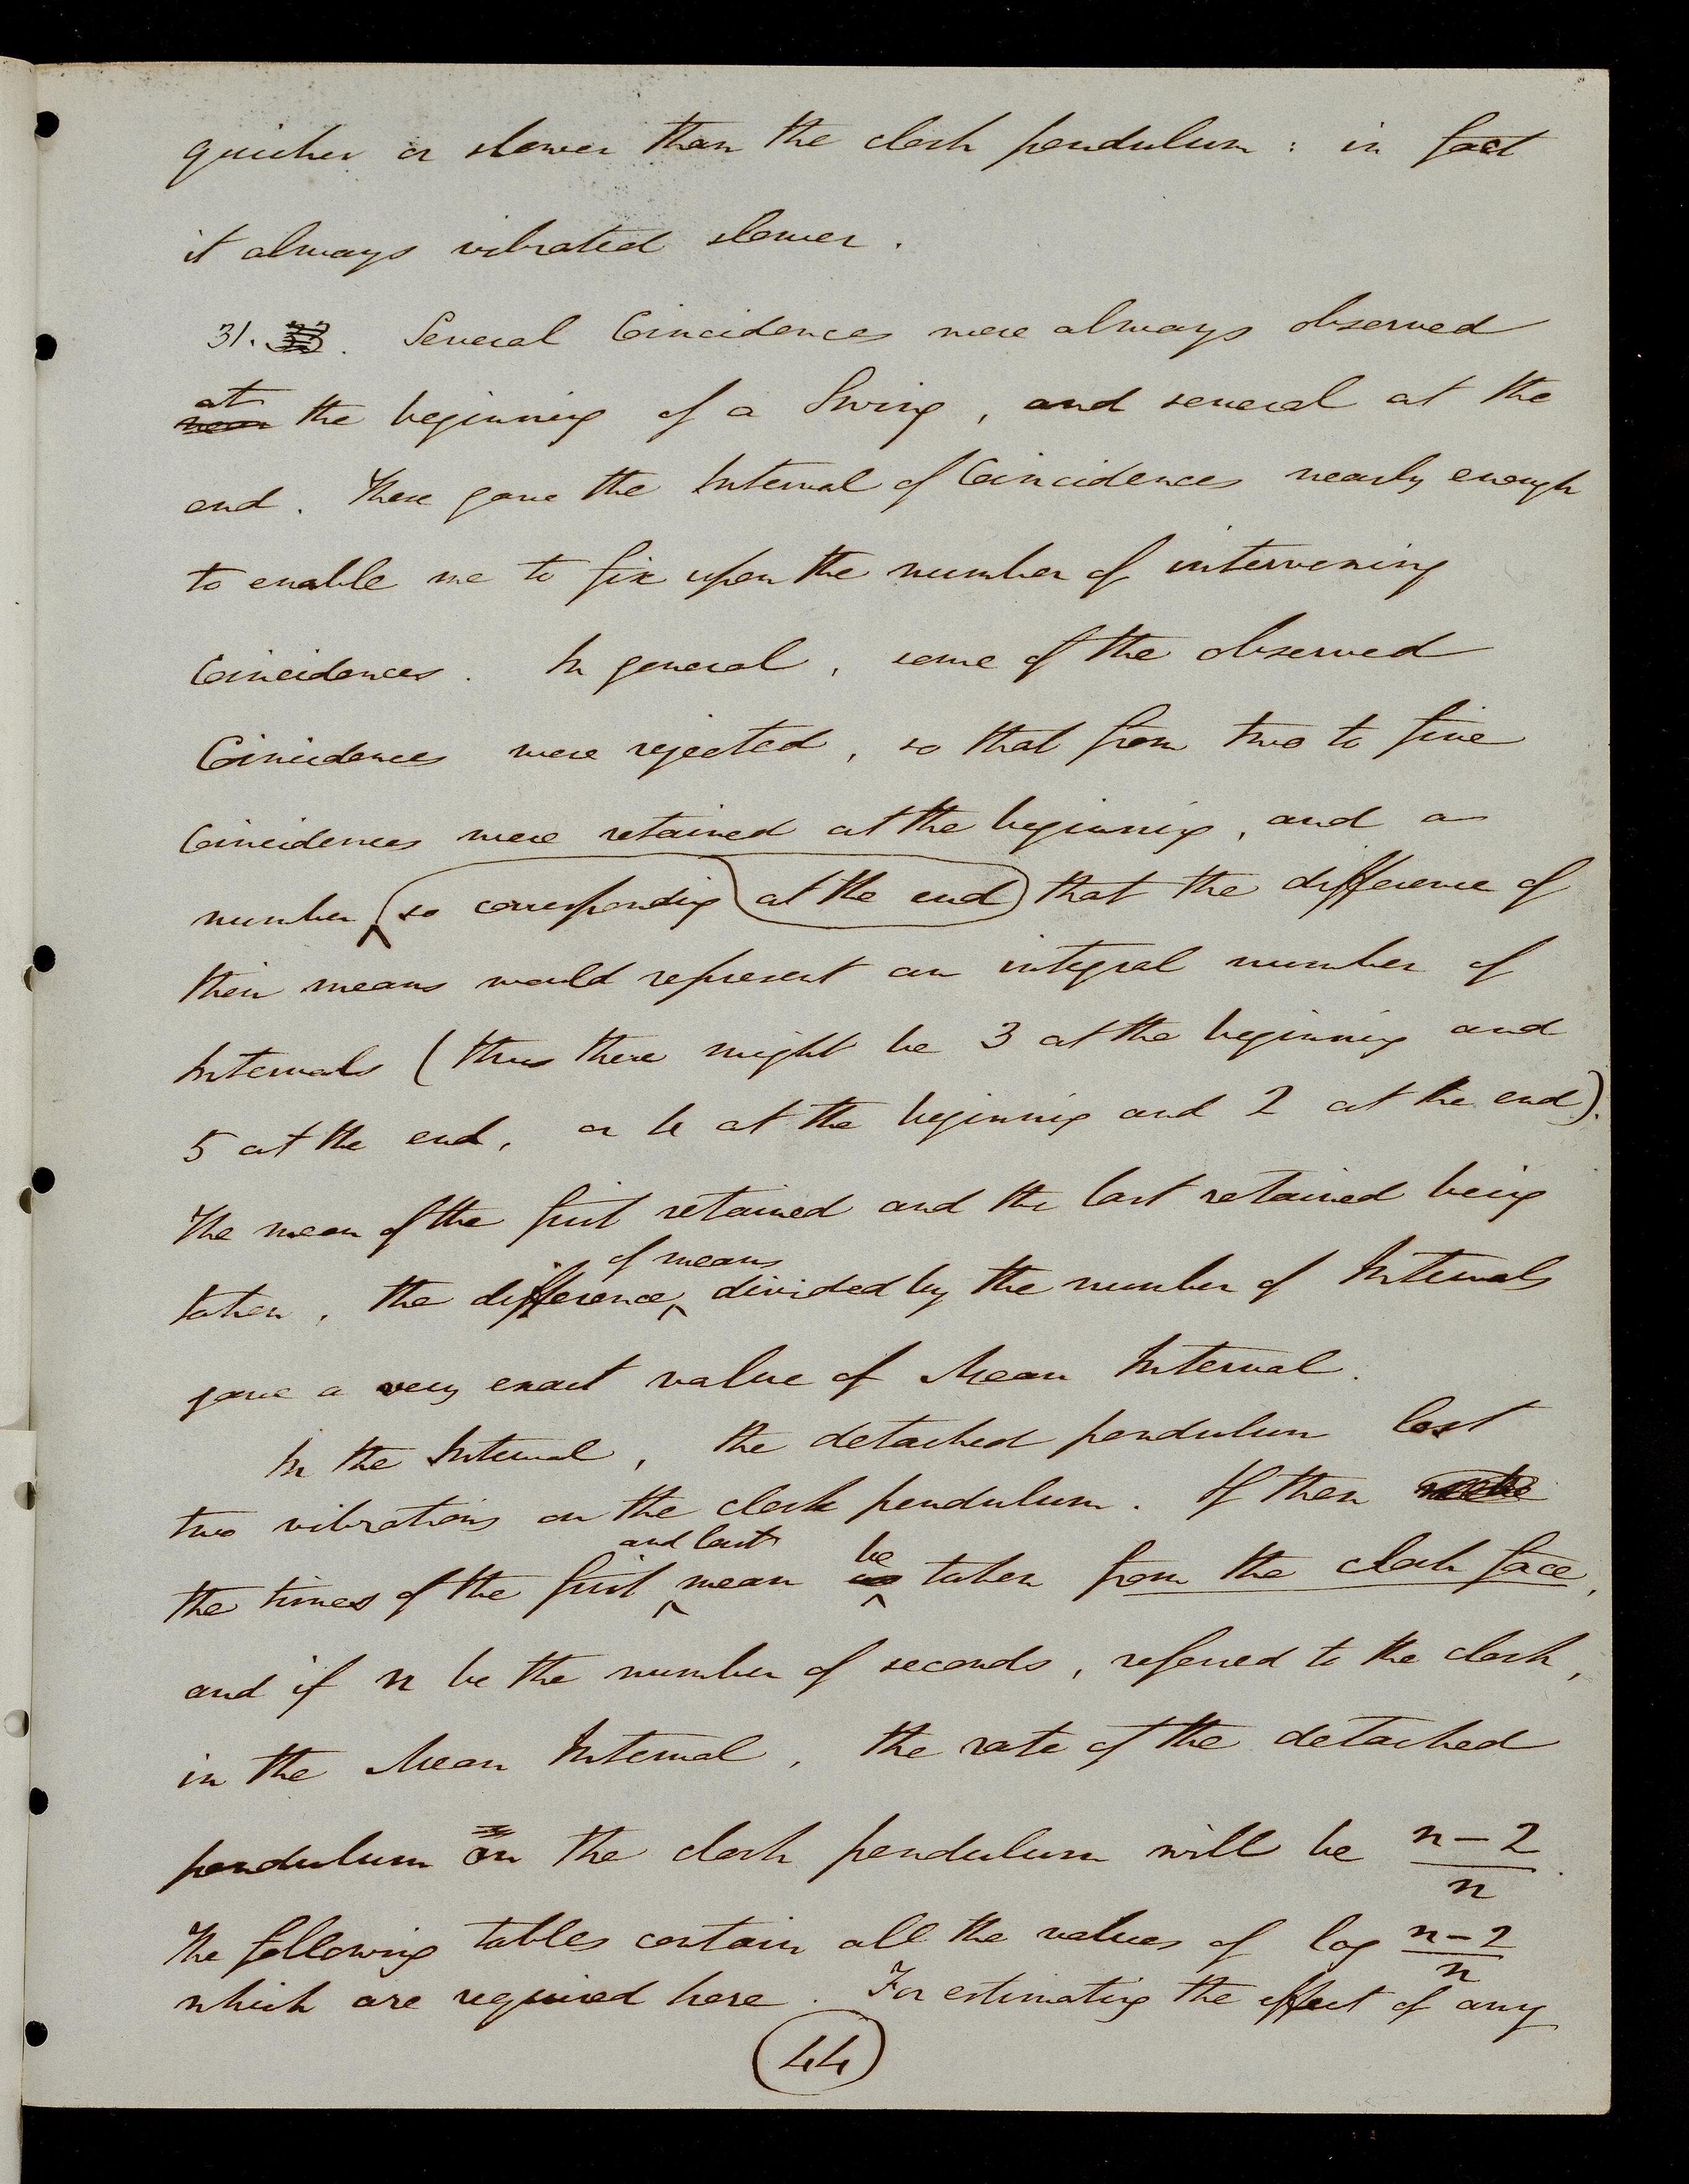 quicker or slower than the clock pendulum : in fact
it always vibrated slower .
31. 33 . Several Coincidences were always observed
at
near the beginning of a Swing , and several at the
end . These gave the Interval of Coincidences nearly enough
to enable me to fix upon the number of intervening
Coincidences . In general , some of the observed
Coincidences were rejected , so that from two to five
Coincidences were retained at the beginning , and a
number so corresponding at the end that the difference of
their means would represent an integral number of
Intervals ( thus there might be 3 at the beginning and
5 at the end , or 4 at the beginning and 2 at the end ) .
The mean of the first retained and the last retained being
of means
taken , the difference ‸ divided by the number of Intervals
gave a very exact value of Mean Interval .
In the Interval , the detached pendulum lost
two vibrations on the clock pendulum . If then
and last be
the times of the first ‸ mean ‸ taken from the clock face ,
and if n be the number of seconds , referred to the clock ,
in the Mean Interval , the rate of the detached
pendulum on the clock pendulum will be n – 2 / n .
The following tables contain all the values of log n – 2 / n
which are required here . For estimating the effect of any
44